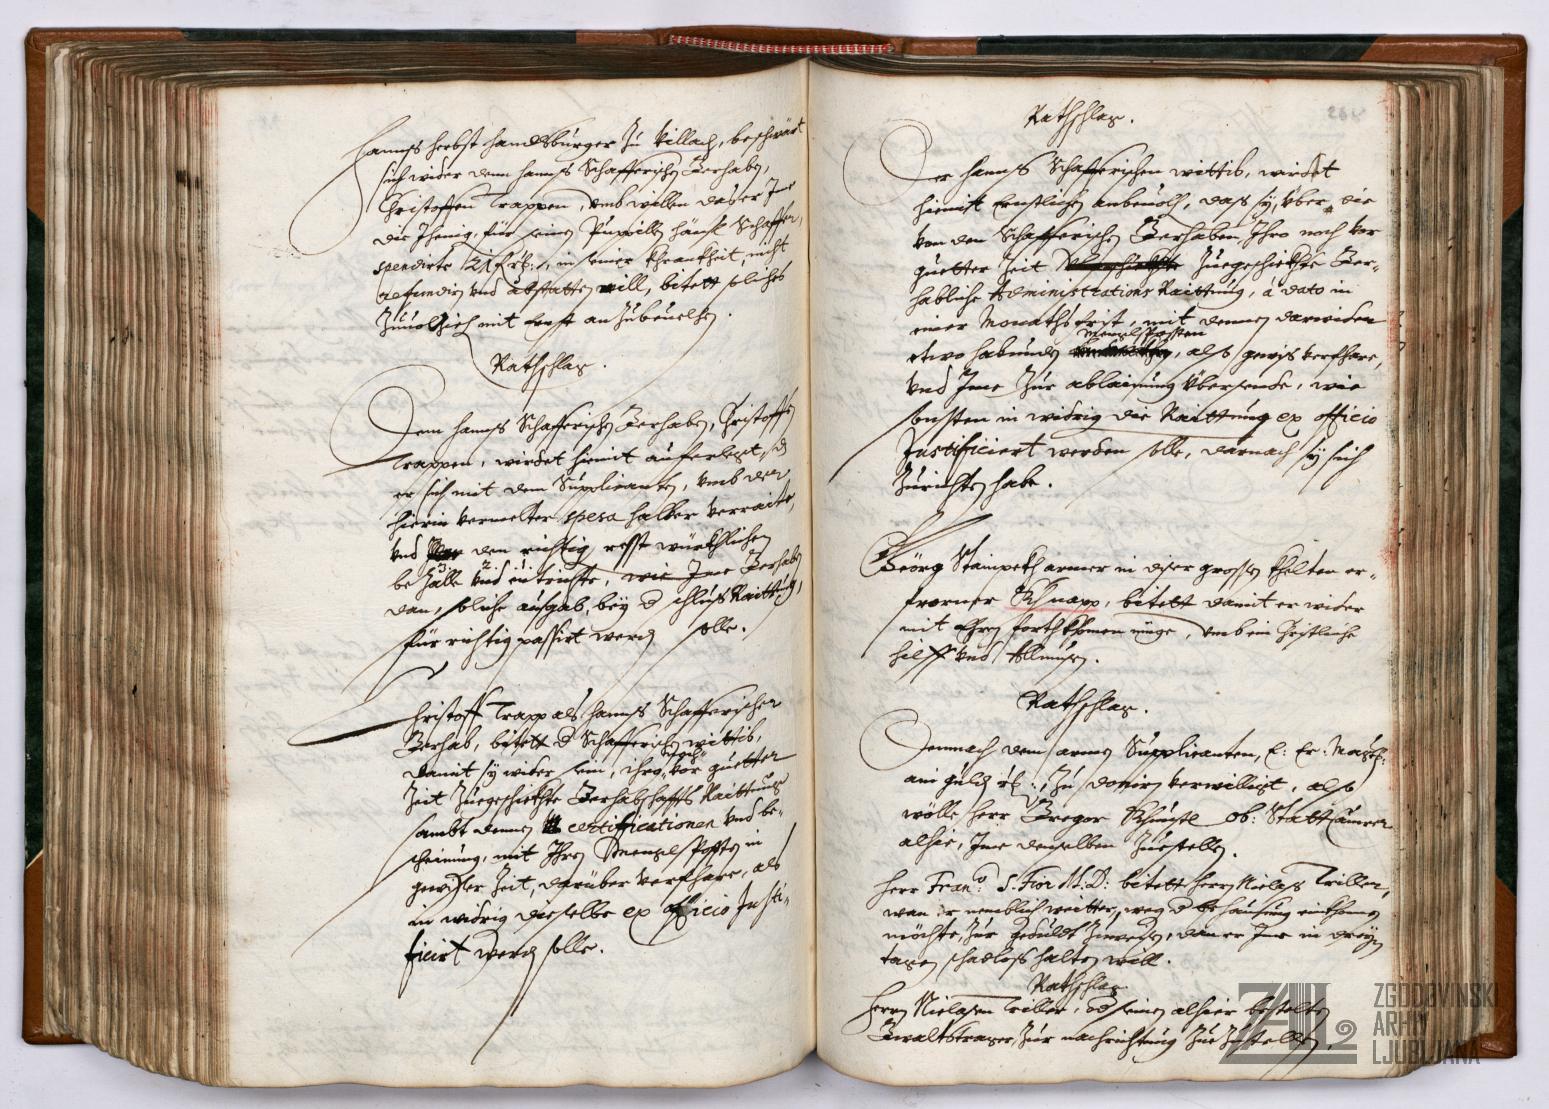 Hannß Herbst Handlsburger zu Villach, beschwärt
sich wider denn Hannß Schafferischen Gerhaben,
Christoffen Trappen, umb willen das er Ime
die Ihenig, für seinen Pupillen Hänsl Schaffer,
spendirte 21 f in seiner Khrankheit, nicht
refundirn und abstatten will, bitett solches
zuvolziehen mit ernst anzubeuelhen.
Rathschlag.
Dem Hannß Schafferischen Gerhaben, Christoffen
Trappen, wirdet hiemit auferlegt, d
er sich mit dem Supplicanten, umb der
hierin vermelter spesa halber verraite,
und den richtig resst würkhlichen
bezalle und entrichte, wie Ime Gerhaben
dan, solche ausgab, bey d schluß Raittung,
für richtig passirt werden solle.
Christoff Trapp als Hannß Schafferischer
Gerhab, bitett d Schafferischen wittib,
damit sy wider sein, ihro noch vor guetter
Zeit zuegeschickhte Gerhabschaffts Raittung
sambt denen certificationen und be-
scheinung, mit Ihren Menglsposten in
gewisser Zeit, darüber verfahre, als
in widrig dieselbe ex officio Justi-
ficirt werden solle.
Rathschlag.
Der Hannß Schafferischen wittib, wirdet
hiemit ernstlichen anbeuolhen, daß sy, über die
von den Schafferischen Gerhaben, Ihro noch vor
guetter Zeit zuegeschickhte Ger-
habliche Administrations Raittung, à dato in
einer Monathsfrist, mit denen darwider
etwo habunden Menglsposten, alß gewiß verfhare,
und Ime zur ablainung übersende, wie
sonsten in widrig die Raittung ex officio
Justificiert werden solle, darnach sy sich
zurichten habe.
Geörg Stampeth armer in diser grossen Khelten er-
frorner Khnapp, bitett damit er wider
mit Ehren forth khomen müge, umb ein Christliche
hilff und Allmusen.
Rathschlag.
Demnach dem armen Supplicanten, E: Er: Mag:
ain gulden zu donirn verwilligt, alß
wölle Herr Gregor Khünstl Ob: Statt Camrer
alhie, Ime denselben zuestellen.
Herr Fran: S. Fior M: D: bitett Herrn Niclaß Triller,
wan er nemblich weitter, weg d behausung einkhomen
möchte, zur geduldt zuweisen, dan er Ime in dreyen
tagen schadloß halten will.
Rathschlag
Herrn Niclasen Triller, od seinen alhier bestelten
Gwaltstrager, zur nachrichtung zue zustellen.
ZGODOVINSKI
ARHIV
LJUBLJANA